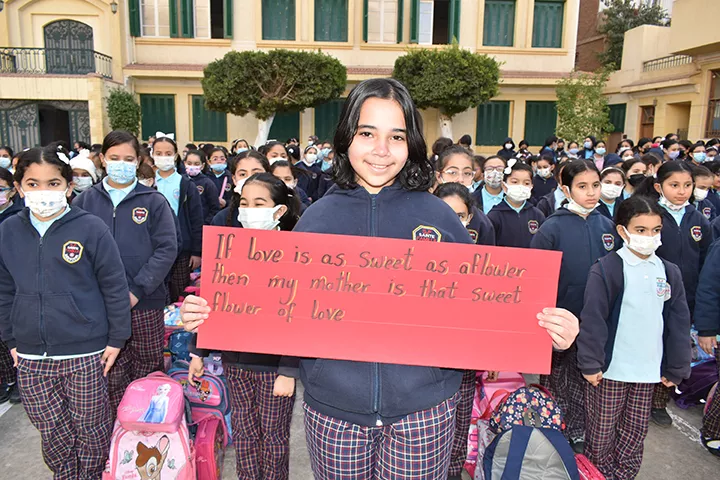 If love is as sweet as aflower
then my mother is that sweet
flower of love